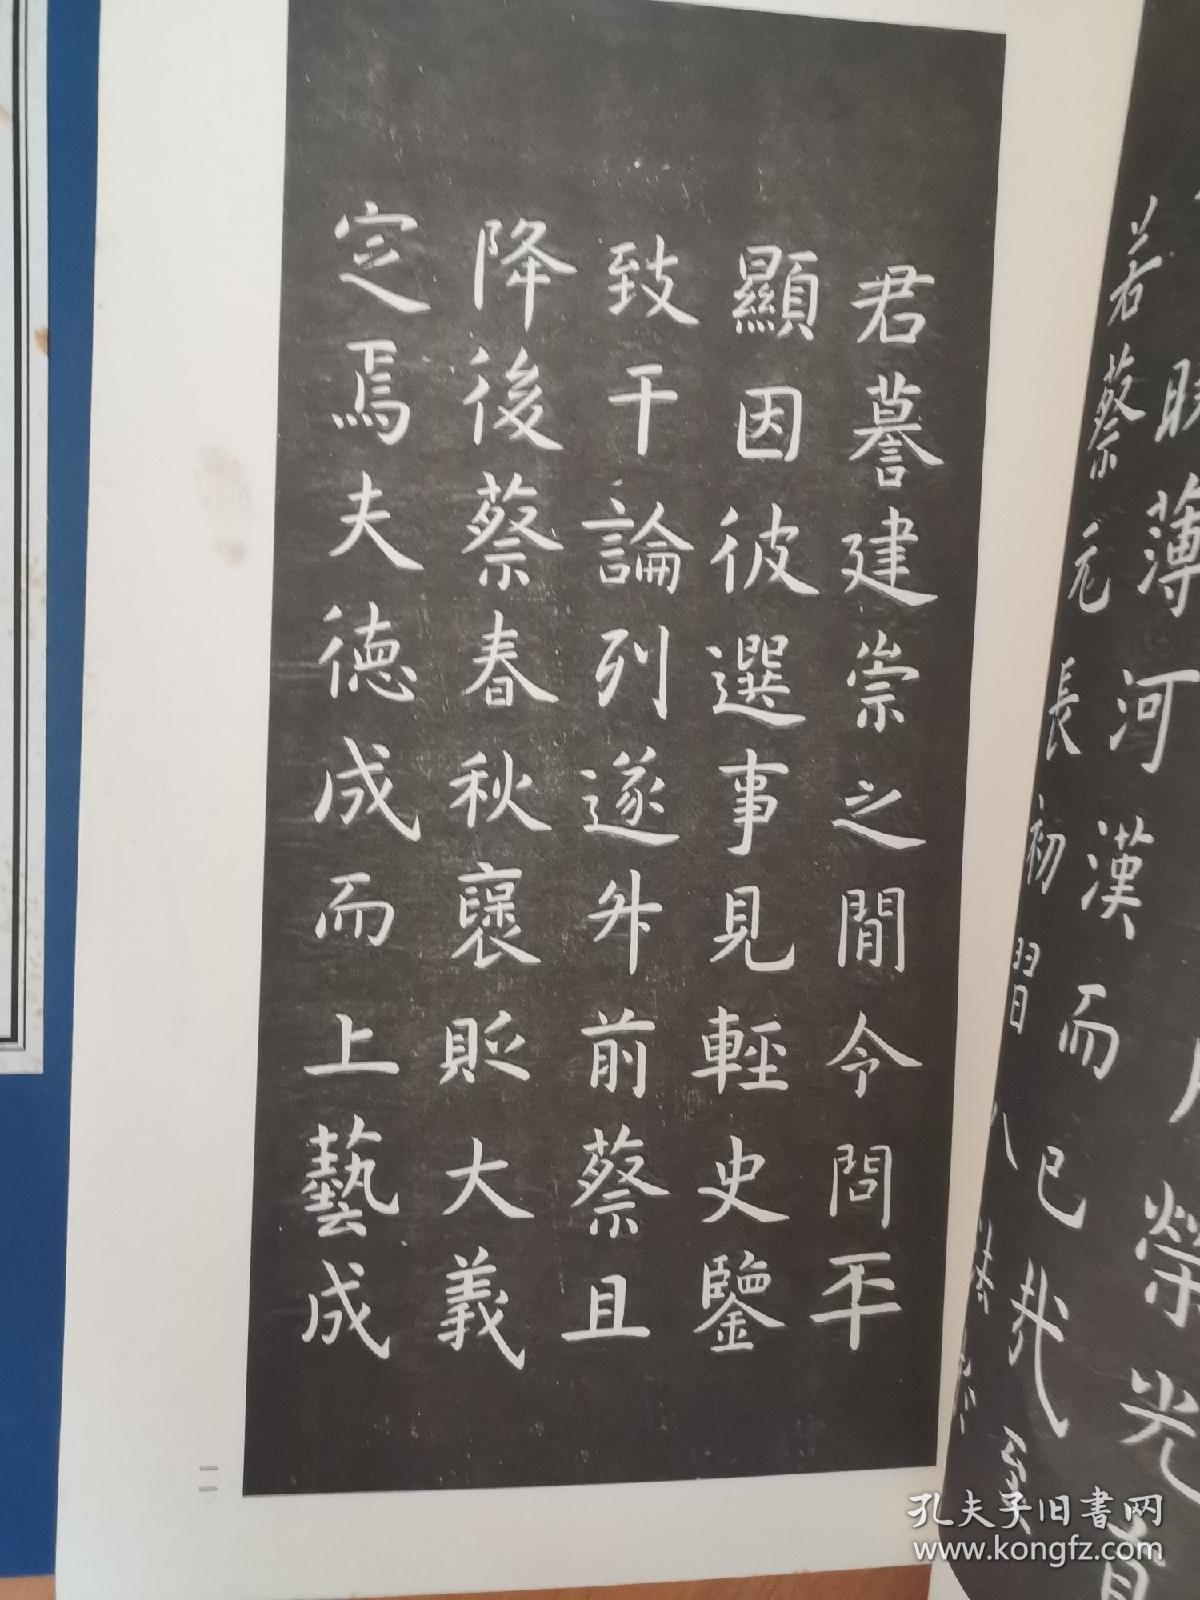 君謩建崇之間令問平
顯因彼選事見輕史鑒
致干論列遂舛前蔡且
降後蔡春秋襃貶大義
定焉夫德成而上藝成
二
薄河漢而已哉
若蔡元長初習
榮光
孔夫子旧书网
www.kongfz.com